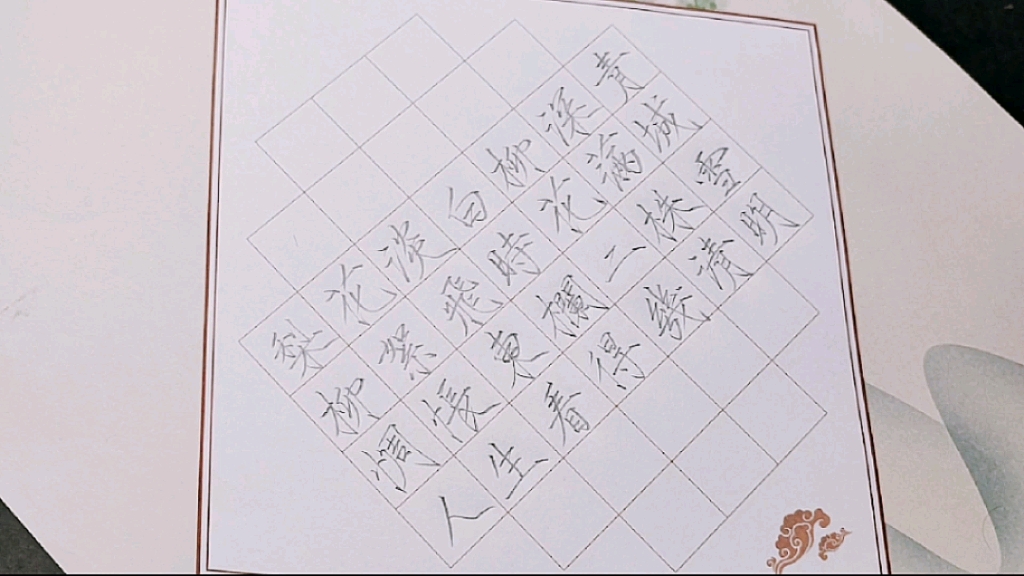 梨花淡白柳深青
柳絮飛時花滿城
惆悵東欄二株雪
人生看得幾清明